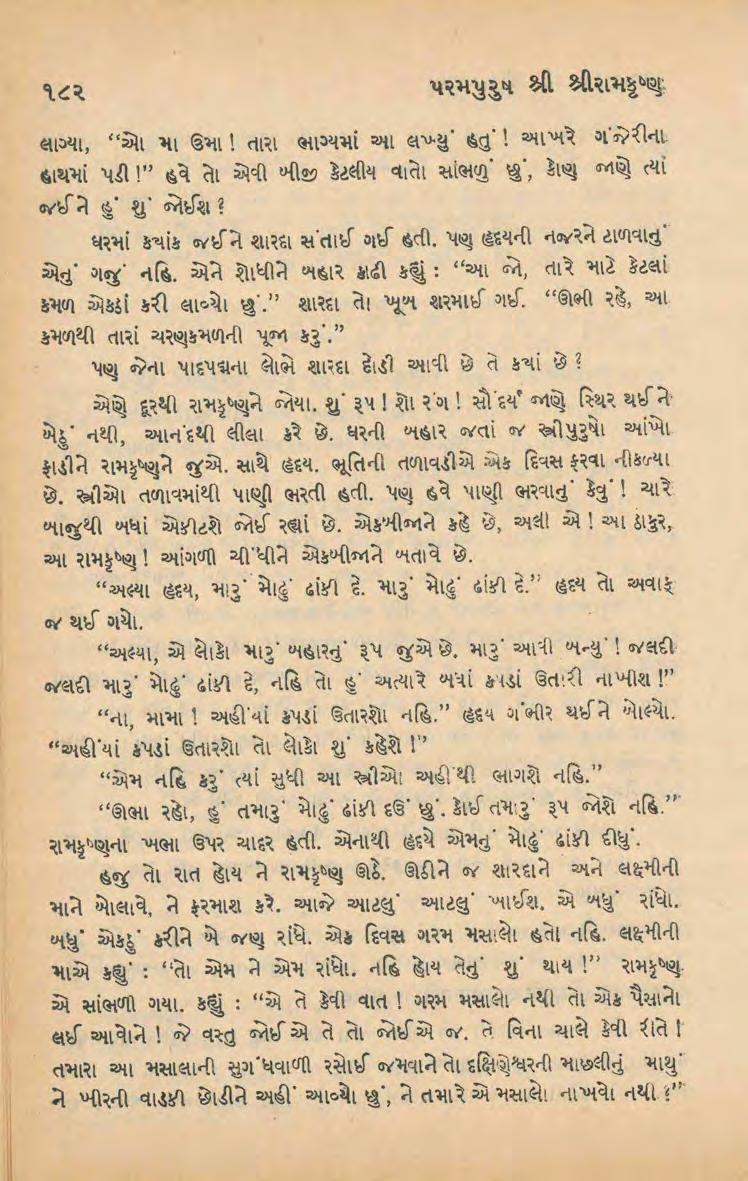 ૧૮૨
પરમપુરુષ શ્રી શ્રીરામકૃષ્ણ
લાગ્યા, “ઓ મા ઉમા ! તારા ભાગ્યમાં આ લખ્યું હતું ! આખરે ગંજેરીના
હાથમાં પડી !” હવે તો એવી બીજી કેટલીય વાતો સાંભળું છું, કોણ જાણે ત્યાં
જઈને હું શું જોઈશ ?
ઘરમાં કયાંક જઈને શારદા સંતાઈ ગઈ હતી. પણ હૃદયની નજરને ટાળવાનું
એનું ગજું નહિ. એને શોધીને બહાર કાઢી કહ્યું : “આ જો, તારે માટે કેટલાં
કમળ એકઠાં કરી લાવ્યો છું.” શારદા તો ખૂબ શરમાઈ ગઈ. “ઊભી રહે, આ
કમળથી તારાં ચરણકમળની પૂજા કરું.”
પણ જેના પાદપદ્મના લોભે શારદા દોડી આવી છે તે કયાં છે ?
એણે દૂરથી રામકૃષ્ણને જોયા. શું રૂપ ! શો રંગ ! સૌંદર્ય જાણે સ્થિર થઈને
બેઠું નથી, આનંદથી લીલા કરે છે. ઘરની બહાર જતાં જ સ્ત્રીપુરુષો આંખો
ફાડીને રામકૃષ્ણને જુએ. સાથે હૃદય. ભૂતિની તળાવડીએ એક દિવસ ફરવા નીકળ્યા
છે. સ્ત્રીઓ તળાવમાંથી પાણી ભરતી હતી. પણ હવે પાણી ભરવાનું કેવું ! ચારે
બાજુથી બધાં એકીટશે જોઈ રહ્યાં છે. એકબીજાને કહે છે, અલી એ ! આ ઠાકુર,
આ રામકૃષ્ણ ! આંગળી ચીંધીને એકબીજાને બતાવે છે.
“અલ્યા હૃદય, મારું મોઢું ઢાંકી દે. મારું મોઢું ઢાંકી દે.” હૃદય તો અવાક્
જ થઈ ગયો.
“અલ્યા, એ લોકો મારું બહારનું રૂપ જુએ છે. મારું આવી બન્યું ! જલદી
જલદી મારું મોઢું ઢાંકી દે, નહિ તો હું અત્યારે બધાં કપડાં ઉતારી નાખીશ !”
“ના, મામા ! અહીંયાં કપડાં ઉતારશો નહિ.” હૃદય ગંભીર થઈને બોલ્યો.
“અહીંયાં કપડાં ઉતારશો તો લોકો શું કહેશે !”
“એમ નહિ કરું ત્યાં સુધી આ સ્ત્રીઓ અહીંથી ભાગશે નહિ.”
“ઊભા રહો, હું તમારું મોઢું ઢાંકી દઉં છું. કોઈ તમારું રૂપ જોશે નહિ.”
રામકૃષ્ણના ખભા ઉપર ચાદર હતી. એનાથી હૃદયે એમનું મોઢું ઢાંકી દીધું.
હજુ તો રાત હોય ને રામકૃષ્ણ ઊઠે. ઊઠીને જ શારદાને અને લક્ષ્મીની
માને બોલાવે, ને ફરમાશ કરે. આજે આટલું આટલું ખાઈશ. એ બધું રાંધો.
બધું એકઠું કરીને બે જણ રાંધે. એક દિવસ ગરમ મસાલો હતો નહિ. લક્ષ્મીની
માએ કહ્યું : “તો એમ ને એમ રાંધો. નહિ હોય તેનું શું થાય !” રામકૃષ્ણ
એ સાંભળી ગયા. કહ્યું : “એ તે કેવી વાત ! ગરમ મસાલો નથી તો એક પૈસાનો
લઈ આવોને ! જે વસ્તુ જોઈએ તે તો જોઈએ જ. તે વિના ચાલે કેવી રીતે !
તમારા આ મસાલાની સુગંધવાળી રસોઈ જમવાને તો દક્ષિણેશ્વરની માછલીનું માથું
ને ખીરની વાડકી છોડીને અહીં આવ્યો છું, ને તમારે એ મસાલો નાખવો નથી ?”